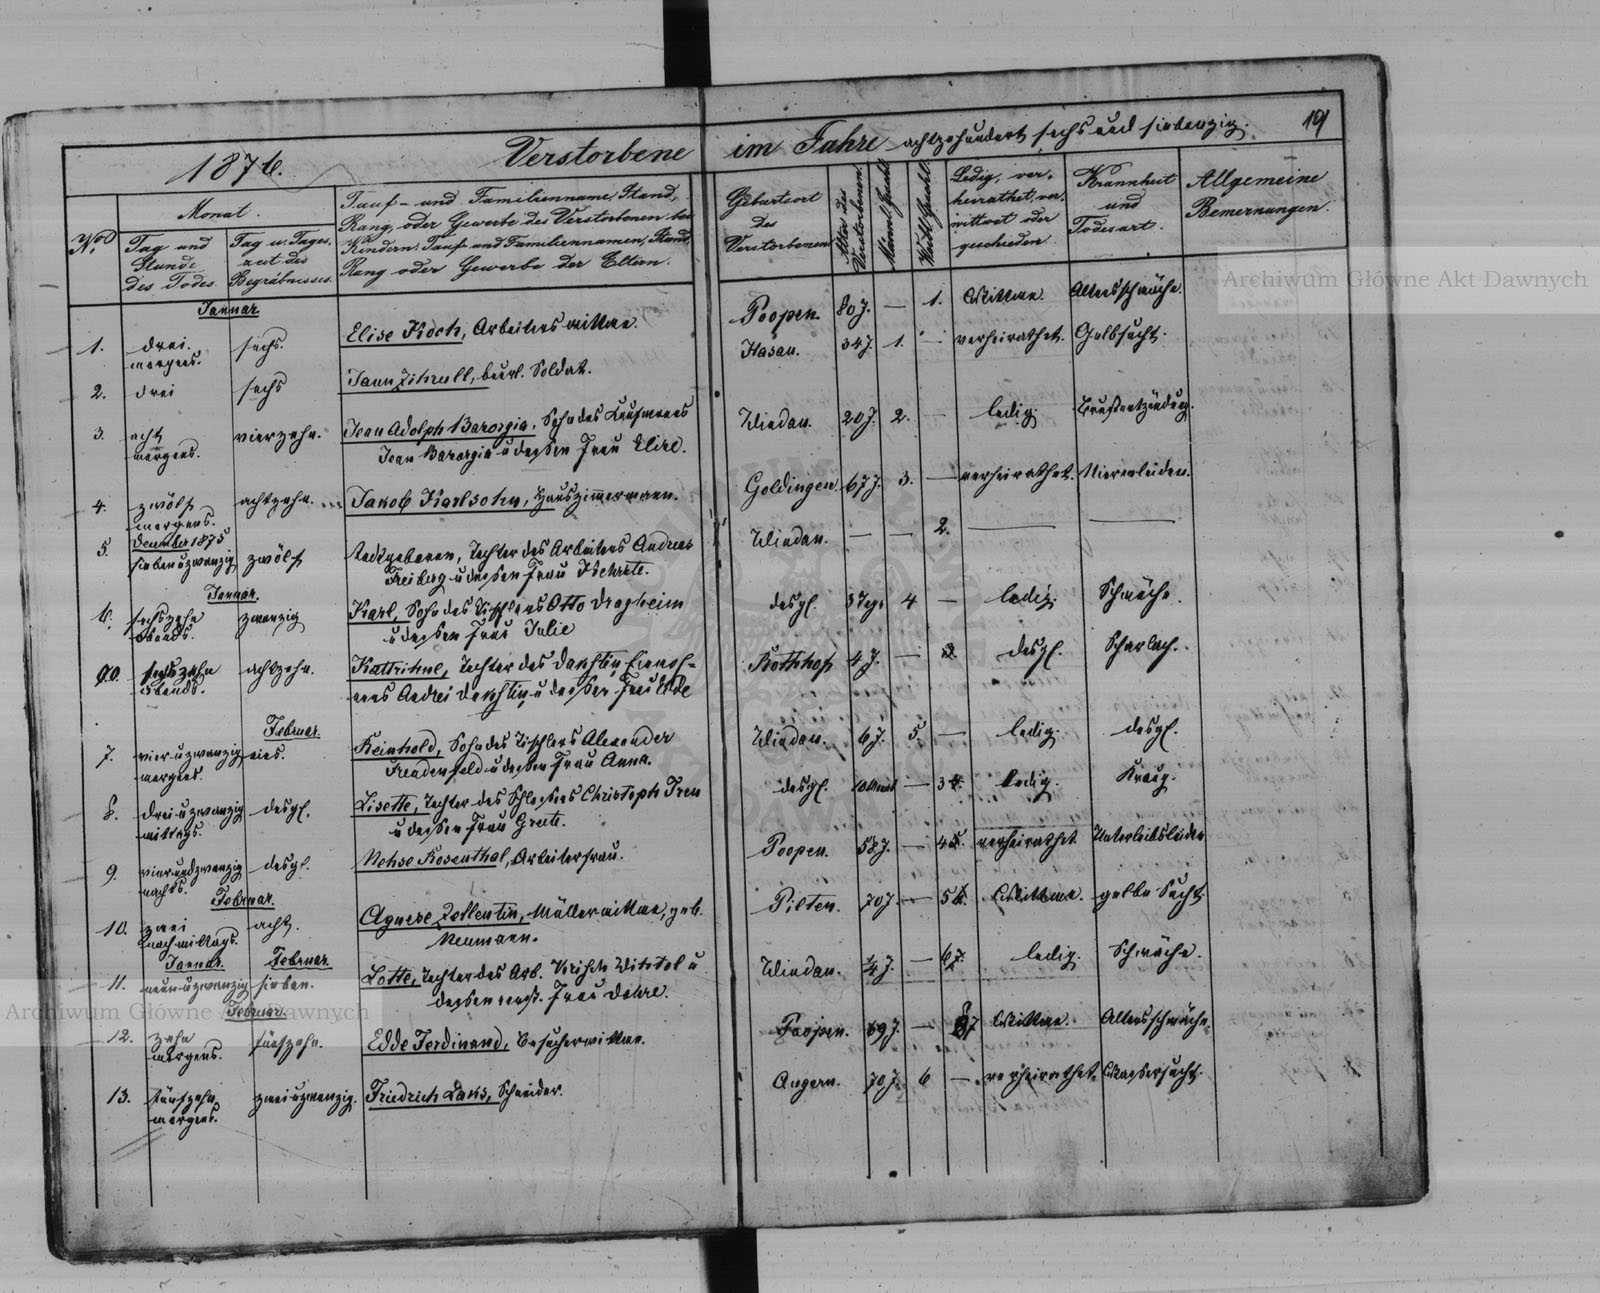 1876.
Verstorbene im Jahre achtzehundert sechs und siebenzig.
191
No.
Monat.
Tag und
Stunde
des Todes
Tag u. Tages-
zeit des
Begräbnisses.
Tauf- und Familienname, Stand,
Rang oder Gewerbe des Verstorbenen bei
Kindern: Tauf und Familiennamen, Stand,
Rang oder Gewerbe der Eltern.
Geburtsort
des
Verstorbenen
Alter des
Verstorbenen.
Männl. Geschl.
Weibl. Geschl.
Ledig, ver-
heirathet, ver-
wittwet oder
geschieden.
Krankheit
und
Todesart.
Allgemeine
Bemerkungen.
Januar
1. drei. sechs. Elise Koch, Arbeiterswittwe. Poopen. 80 J. — 1. Wittwe. Altersschwäche.
morgens.
2. drei sechs Jann Zihrull, beurl. Soldat. Hasau. 34 J. 1. — verheirathet. Gelbsucht.
3. acht vierzehn. Jean Adolph , Sohn des Kaufmanns Windau. 20 J. 2. — ledig. Brustentzündung.
morgens. Jean u dessen Frau Elise.
4. zwölf achtzehn. Jakob Karlsohn, Hauszimmermann. Goldingen. 67 J. 3. — verheirathet. Nierenleiden.
morgens.
December 1875
5. sieben u zwanzig zwölf Todtgeboren, Tochter des Arbeiters Andreas Windau. — — 2. — —
Freiberg u dessen Frau
Januar.
6. sechszehn zwanzig Karl, Sohn des Tischlers Otto Dragheim desgl. 3 Tage 4 — ledig. Schwäche.
abends. u dessen Frau Julie
sechszehn achtzehn. Kattrihne, Tochter des 4 J. — desgl. Scharlach.
abends. Andrei u dessen Frau
Februar.
7. vier u zwanzig eins. Reinhold, Sohn des Tischlers Alexander Windau. 6 J. 5. — ledig. desgl.
morgens. Freudenfeld u dessen Frau Anna.
8. drei u zwanzig desgl. Lisette, Tochter des Schlossers Christoph Treu desgl. — 3 ledig.
mittags. u dessen Frau Greete.
9. vierundzwanzig desgl. Nehse Rosenthal, Arbeiterfrau. Poopen. 58 J. — 4 verheirathet. Unterleibsleiden
nachts.
Februar.
10. zwei acht. Agnese Zollentin, Müllerwittwe, geb. Pilten. 70 J. — 5 Wittwe. gelbe Sucht
nachmittags. Neumann.
Januar. Februar.
11. neun u zwanzig sieben. Lotte, Tochter des Arb. Krisch u Windau. ¼ J. — 6 ledig. Schwäche.
dessen Frau Dohre.
Februar.
12. zehn fünfzehn. Edde Ferdinand, Besucherwittwe. Poopen. 69 J. — 7 Wittwe. Altersschwäche.
morgens.
13. fünfzehn zwei u zwanzig. Friedrich Laks, Schneider. Angern. 70 J. 6 — verheirathet. Wassersucht.
morgens.
Archiwum Główne Akt Dawnych
Archiwum Główne Akt Dawnych